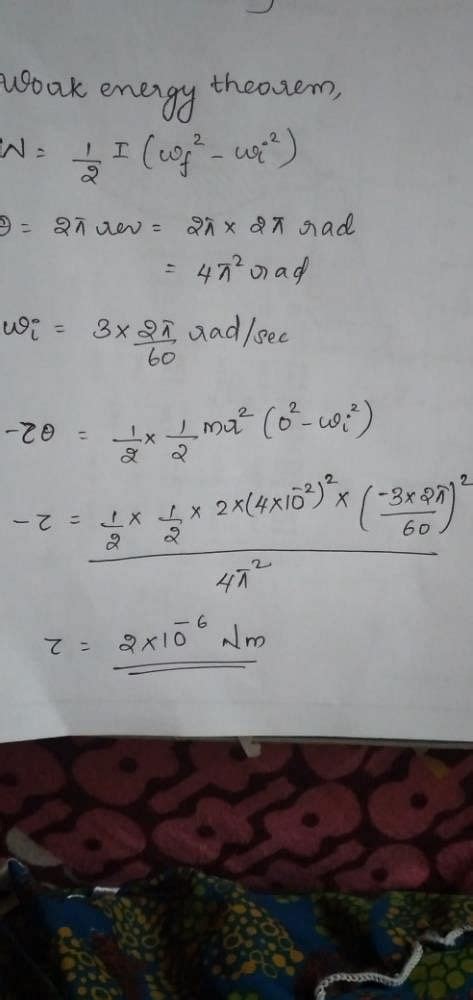 Work energy theorem,
W = 1/2 I (ωf² - ωi²)
θ = 2π rev = 2π × 2π rad
= 4π² rad
ωi = 3 × 2π/60 rad/sec
-θτ = 1/2 × 1/2 mr² (0² - ωi²)
-τ = 1/2 × 1/2 × 2×(4×10⁻²)² × (-3×2π/60)² / 4π²
τ = 2×10⁻⁶ Nm